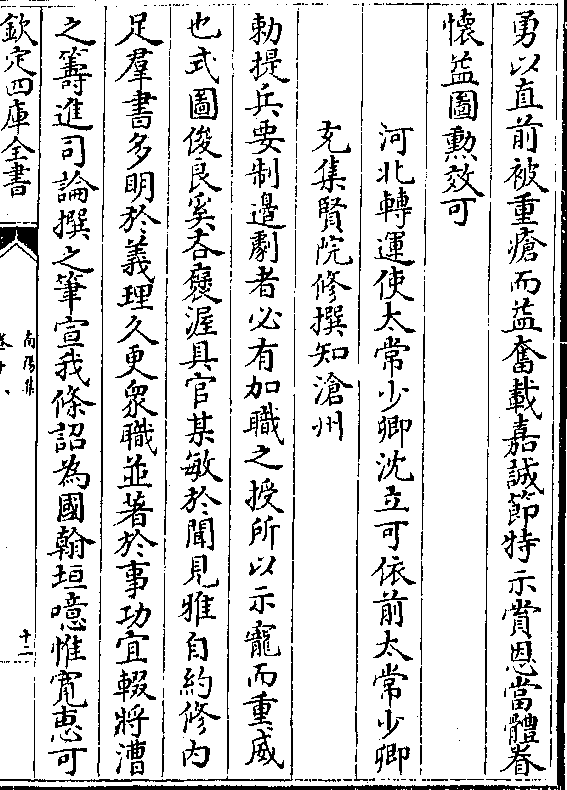 勇以直前被重瘡而益奮載嘉誠節特示賞恩當體眷
懷益圖勲效可
河北轉運使太常少卿沈立可依前太常少卿
充集賢院修撰知滄州
勅提兵要制邊劇者必有加職之授所以示寵而重威
也式圖俊良奚吝襃渥具官某敏於聞見雅自約修内
足羣書多明於義理久更衆職並著於事功宜輟將漕
之籌進司論撰之筆宣我條詔為國翰垣噫惟寛恵可
欽定四庫全書
南陽集
十二